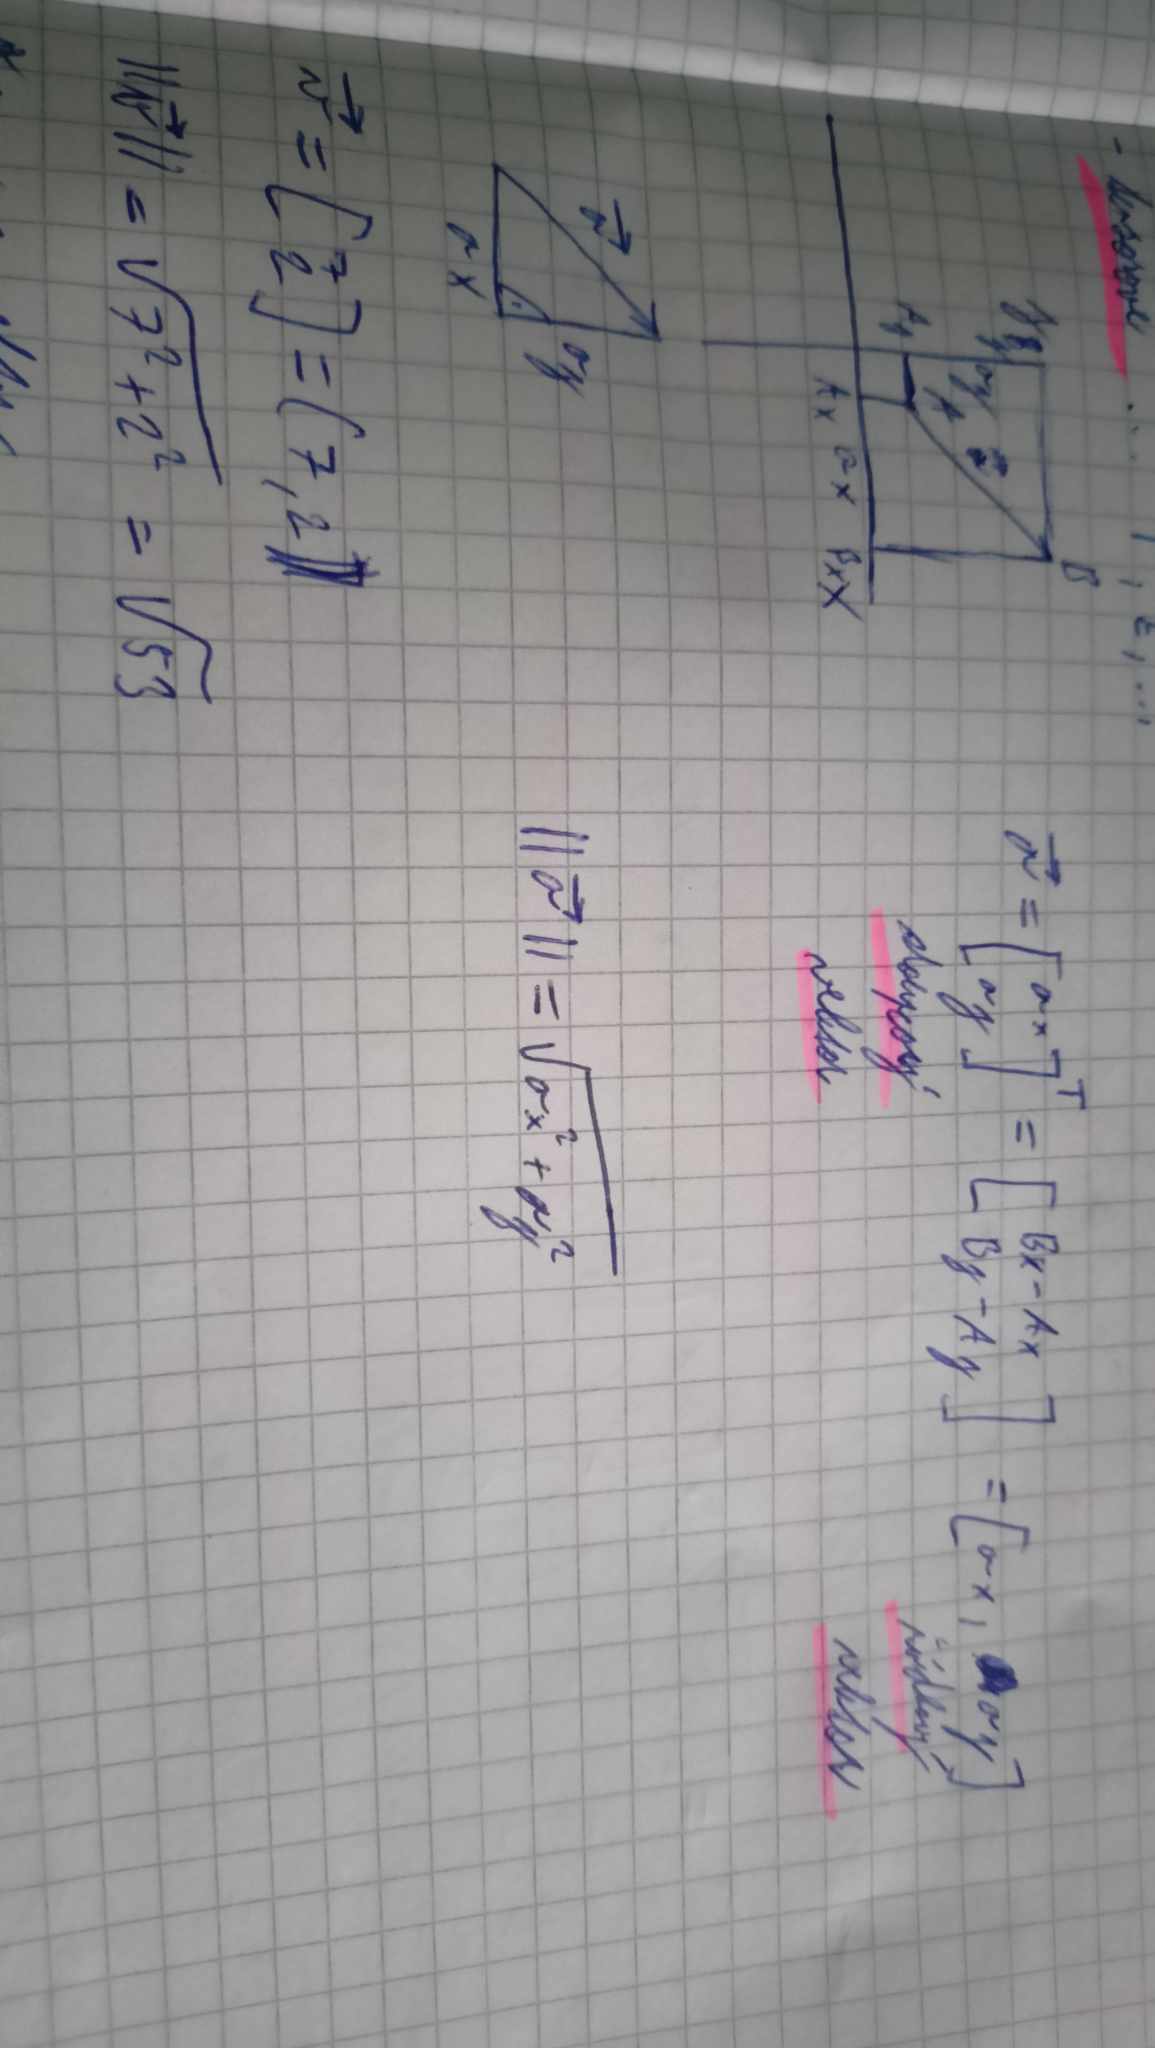 - tensorové ... T, ε, ...
B
y By
ay a⃗
A
Ay
Ax ax Bx X
a⃗ = [ax ay]ᵀ = [Bx - Ax By - Ay] = [ax, ay]
sloupcový řádkový
vektor vektor
a⃗
ay
ax
||a⃗|| = √(ax² + ay²)
v⃗ = [7 2] = (7, 2]
||v⃗|| = √(7² + 2²) = √53